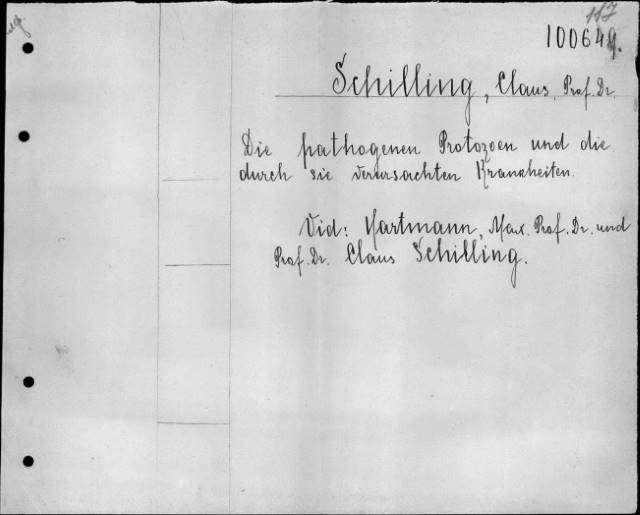 117
100649.
Schilling, Claus, Prof. Dr.
Die pathogenen Protozoen und die
durch sie verursachten Krankheiten.
Vid: Hartmann, Max. Prof. Dr. und
Prof. Dr. Claus Schilling.